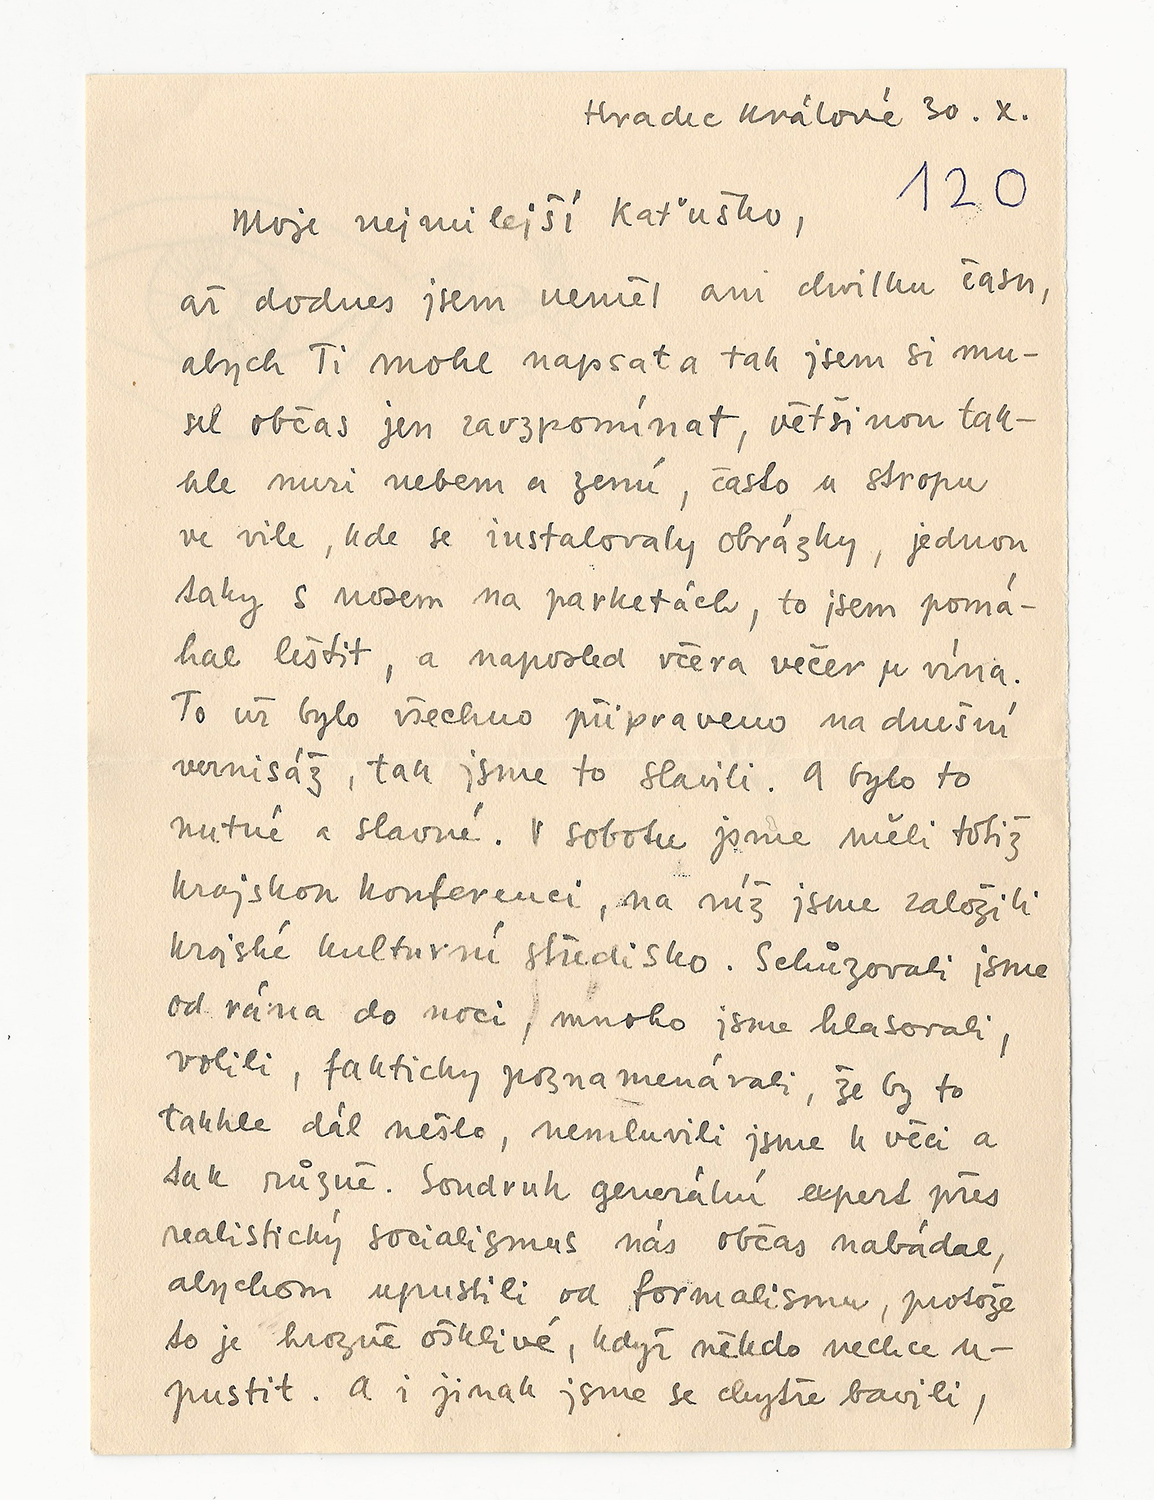 Hradec Králové 30. X.
120
Moje nejmilejší Kaťuško,
až dodnes jsem neměl ani chvilku času,
abych Ti mohl napsat a tak jsem si mu-
sel občas jen zavzpomínat, většinou tak-
hle mezi nebem a zemí, často u stropu
ve vile, kde se instalovaly obrázky, jednou
taky s nosem na parketách, to jsem pomá-
hal leštit, a naposled včera večer u vína.
To už bylo všechno připraveno na dnešní
vernisáž, tak jsme to slavili. A bylo to
nutné a slavné. V sobotu jsme měli totiž
krajskou konferenci, na níž jsme založili
krajské kulturní středisko. Schůzovali jsme
od rána do noci, mnoho jsme hlasovali,
volili, fakticky poznamenávali, že by to
takhle dál nešlo, nemluvili jsme k věci a
tak různě. Soudruh generální expert přes
realistický socialismus nás občas nabádal,
abychom upustili od formalismu, protože
to je hrozně ošklivé, když někdo nechce u-
pustit. A i jinak jsme se chytře bavili,